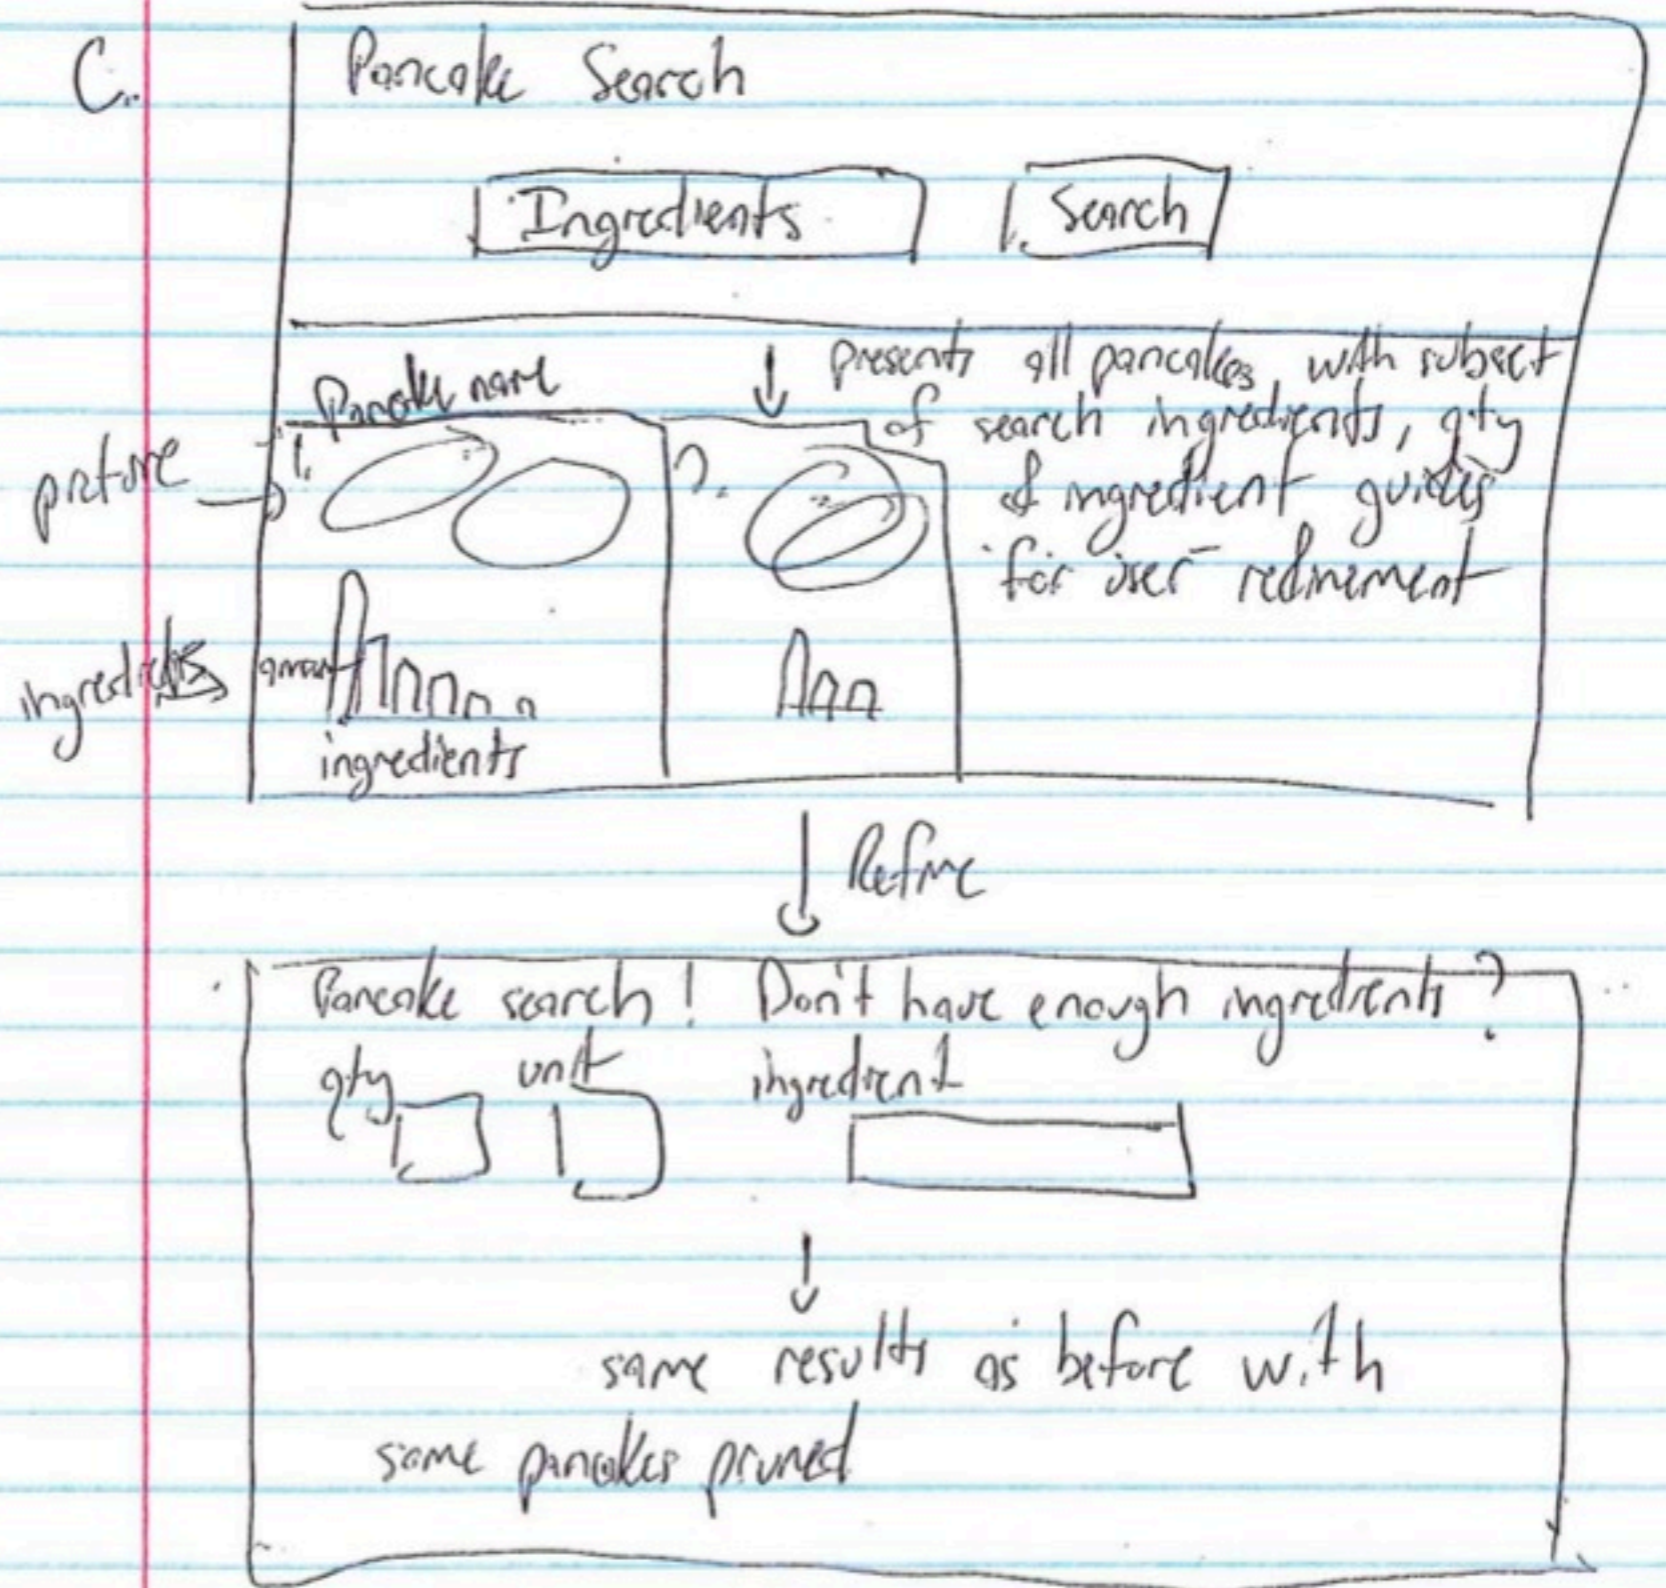 C.
Pancake Search
Ingredients Search
Pancake name
presents all pancakes, with subset
of search ingredients, qty
of ingredient guides
for user refinement
1. 2.
picture
ingredients
amount
ingredients
Refine
Pancake search! Don't have enough ingredients?
qty unit ingredient
same results as before with
some pancakes pruned